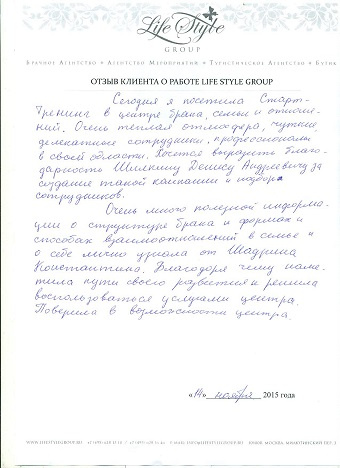 Life Style
GROUP
Брачное Агентство • Агентство Мероприятий • Туристическое Агентство • Бутик
ОТЗЫВ КЛИЕНТА О РАБОТЕ LIFE STYLE GROUP
Сегодня я посетила Старт-
Тренинг в центре брака, семьи и отноше-
ний. Очень теплая атмосфера, чуткие,
деликатные сотрудники, профессионалы
в своей области. Хочется выразить благо-
дарность Шилкину Денису Андреевичу за
создание такой кампании и подбор
сотрудников.
Очень много полезной информа-
ции о структуре брака и формах и
способах взаимоотношений в семье и
о себе лично узнала от Шадрина
Константина. Благодаря чему наме-
тила пути своего развития и решила
воспользоваться услугами центра.
Поверила в возможности центра.
«14» ноября 2015 года